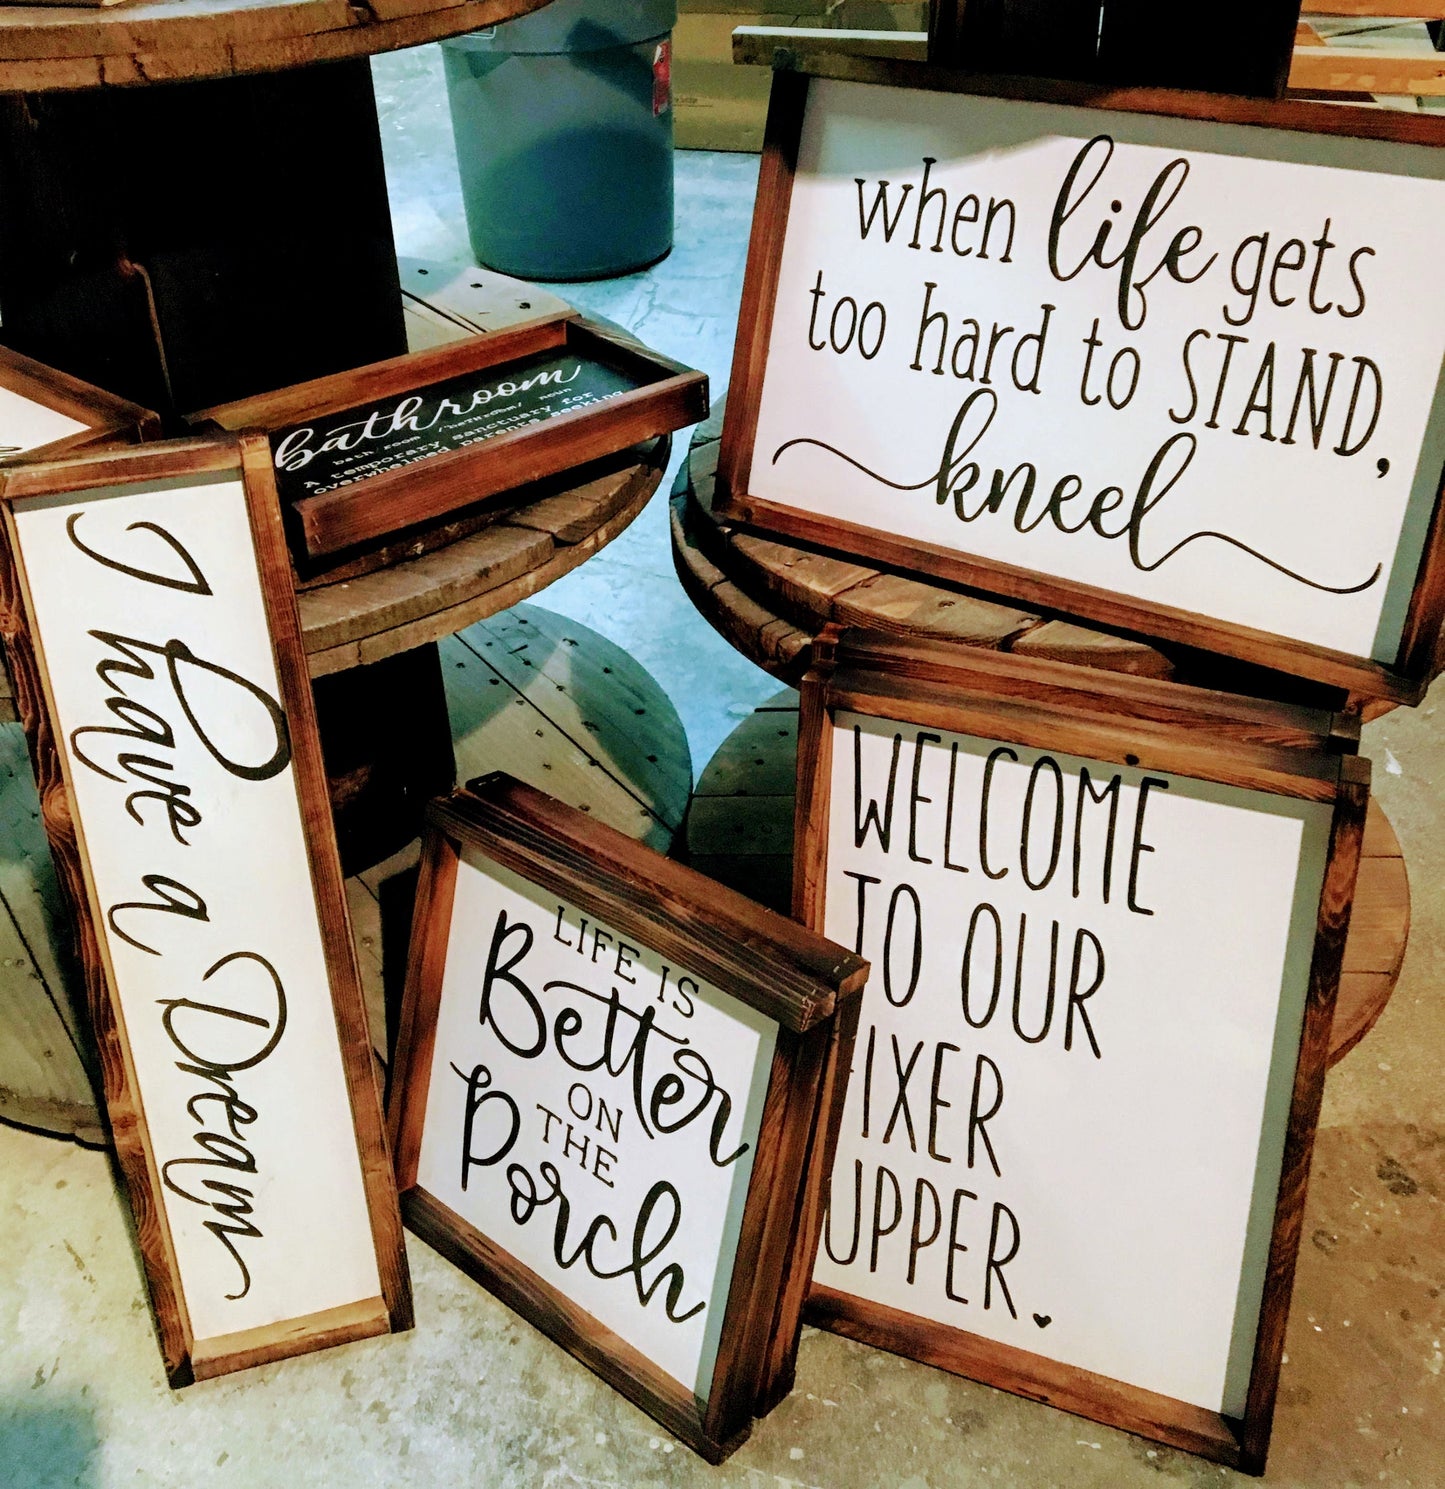 when life gets
too hard to STAND,
kneel
bathroom
bath·room /'baTHroom/ noun
A temporary sanctuary for
overwhelmed parents seeking
I have a Dream
LIFE IS
Better
ON
THE
Porch
WELCOME
TO OUR
FIXER
UPPER.